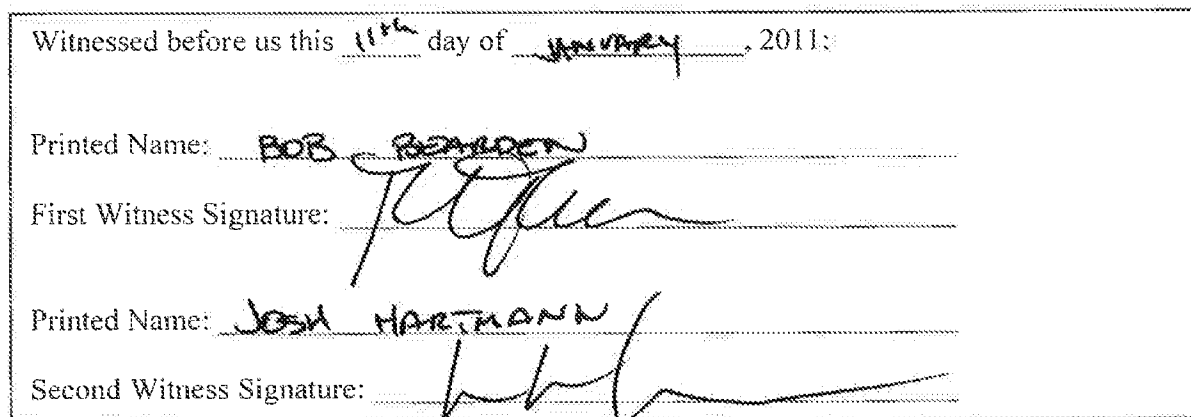 Witnessed before us this 11th day of JANUARY, 2011:
Printed Name: BOB BEARDEN
First Witness Signature:
Printed Name: JOSH HARTMANN
Second Witness Signature: